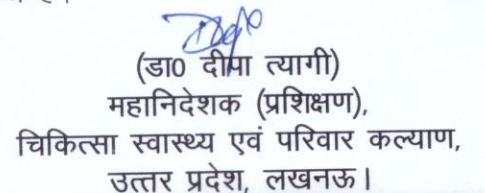 (डा0 दीपा त्यागी)
महानिदेशक (प्रशिक्षण),
चिकित्सा स्वास्थ्य एवं परिवार कल्याण,
उत्तर प्रदेश, लखनऊ।